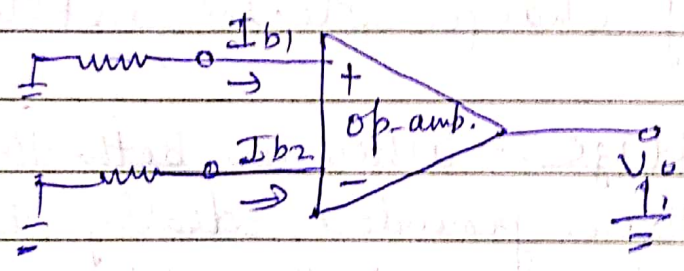 Ib1
+
op-amp.
Ib2
-
Vo